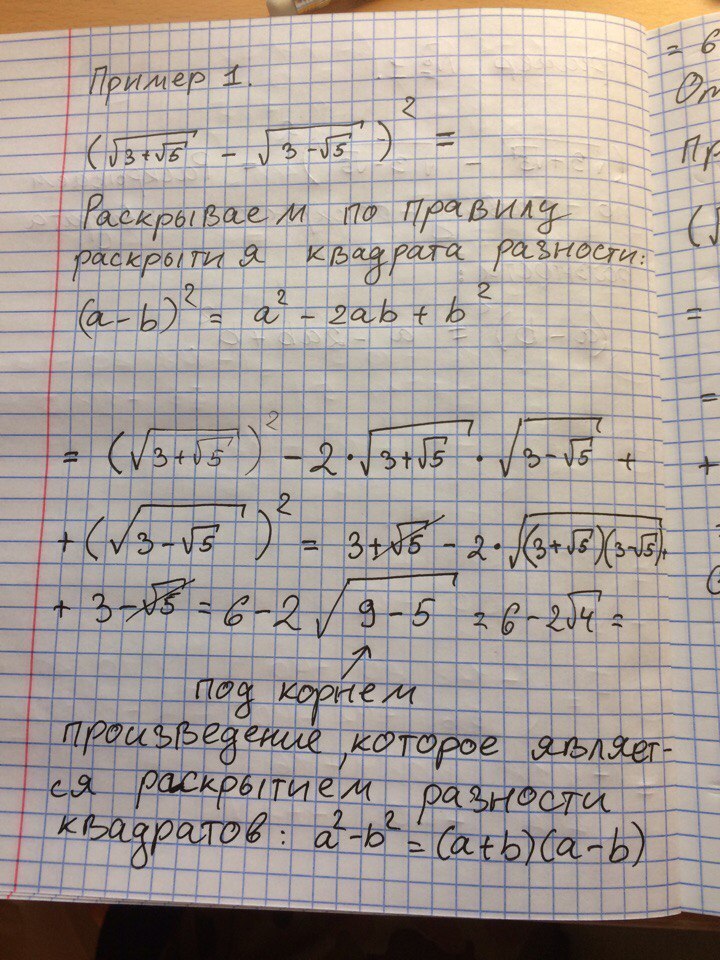 Пример 1.
(√(3+√5) − √(3−√5))² =
Раскрываем по правилу
раскрытия квадрата разности:
(a−b)² = a² − 2ab + b²
= (√(3+√5))² − 2·√(3+√5) · √(3−√5) +
+ (√(3−√5))² = 3+√5 − 2·√((3+√5)(3−√5)) +
+ 3−√5 = 6−2√(9−5) = 6−2√4 =
под корнем
произведение, которое являет-
ся раскрытием разности
квадратов: a²−b² = (a+b)(a−b)
= 6
От
Пр
(√
=
=
+